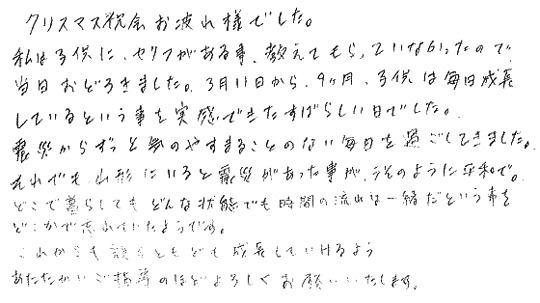 クリスマス祝会お疲れ様でした。
私は子供に、セリフがある事、教えてもらっていなかったので
当日おどろきました。3月11日から、9ヶ月、子供は毎日成長
しているという事を実感できたすばらしい日でした。
震災からずっと気のやすまることのない毎日を過ごしてきました。
それでも山形にいると震災があった事が、うそのように平和で。
どこで暮らしてもどんな状態でも時間の流れは一緒だという事を
どこかで忘れていたようです。
これからも親子ともども成長していけるよう
あたたかいご指導のほどよろしくお願いいたします。